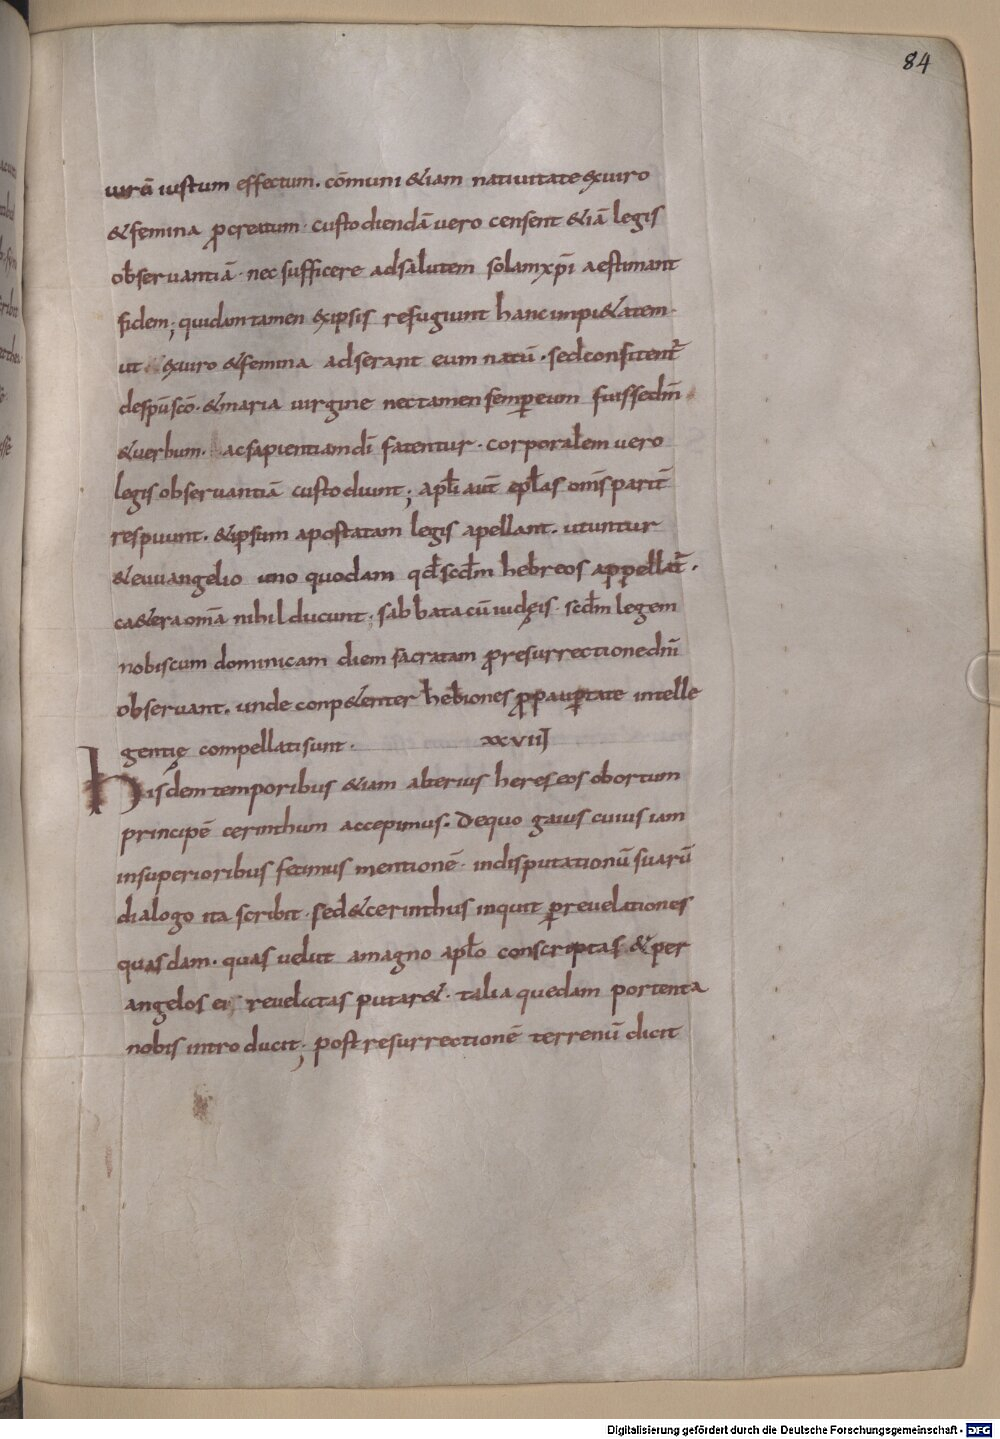 84
uirā iustum effectum. cōmuni &iam natiuitate exuiro
&femina ꝓcreatum· custodiendā vero censent &iā legis
observantiā· nec sufficere adsalutem solamxp̄i aestimant
fidem; quidam tamen exipsis refugiunt hanc impi&atem·
ut exuiro &femina adserant eum natū· sedconfitent᷑
despū scō· &maria uirgine nec tamen semꝑ eum fuisse dm̄
&verbum. ac sapientiam dī fatentur· corporalem vero
legis observantiā custodiunt; apłi aut̄ epłas om̄s parit̄
respuunt. &ipsum apostatam legis apellant. utuntur
&euuangelio uno quodam qđ scđm hebreos appellat᷑.
ca&era omā nihil ducunt; sabbata cū iudęis· scđm legem
nobiscum dominicam diem sacratam ꝓ resurrectione dnī
observant. unde conp&enter hebiones ꝓp pauꝑtate intelle
gentię compellati sunt· xxvii
hisdem temporibus &iam alterius hereseos obortum
principē cerinthum accepimus. Dequo gaius cuius iam
insuperioribus fecimus mentionē· indisputationū suarū
dialogo ita scribit· sed &cerinthus inquit ꝑ revelationes
quasdam· quas velut amagno apło conscriptas &per
angelos ei revelatas putar&· talia quedam portenta
nobis introducit; post resurrectionē terrenū dicit
Digitalisierung gefördert durch die Deutsche Forschungsgemeinschaft - DFG